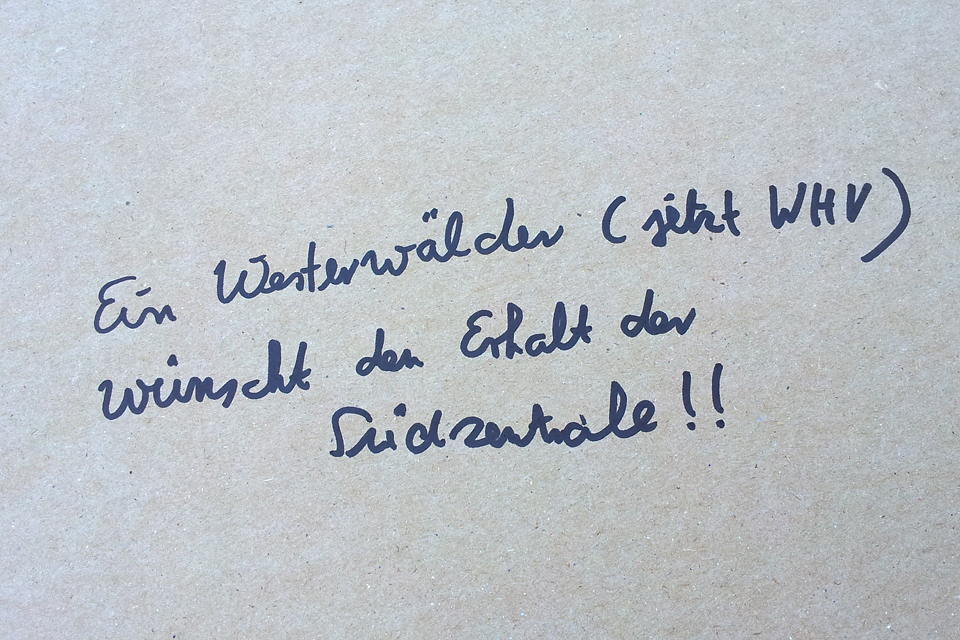 Ein Westerwälder (jetzt WHV)
wünscht den Erhalt der
Südzentrale!!